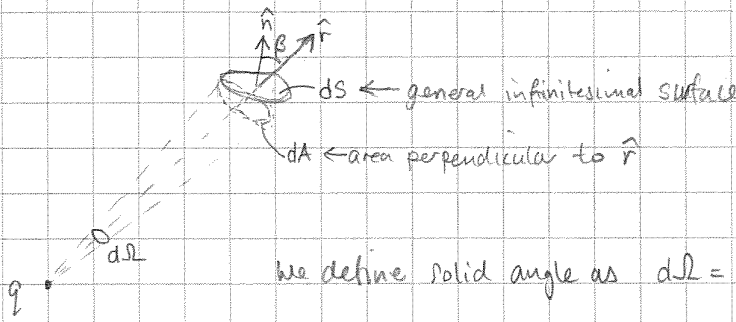 n̂ β r̂
dS ← general infinitesimal surface
dA ← area perpendicular to r̂
dΩ
q
We define solid angle as dΩ =